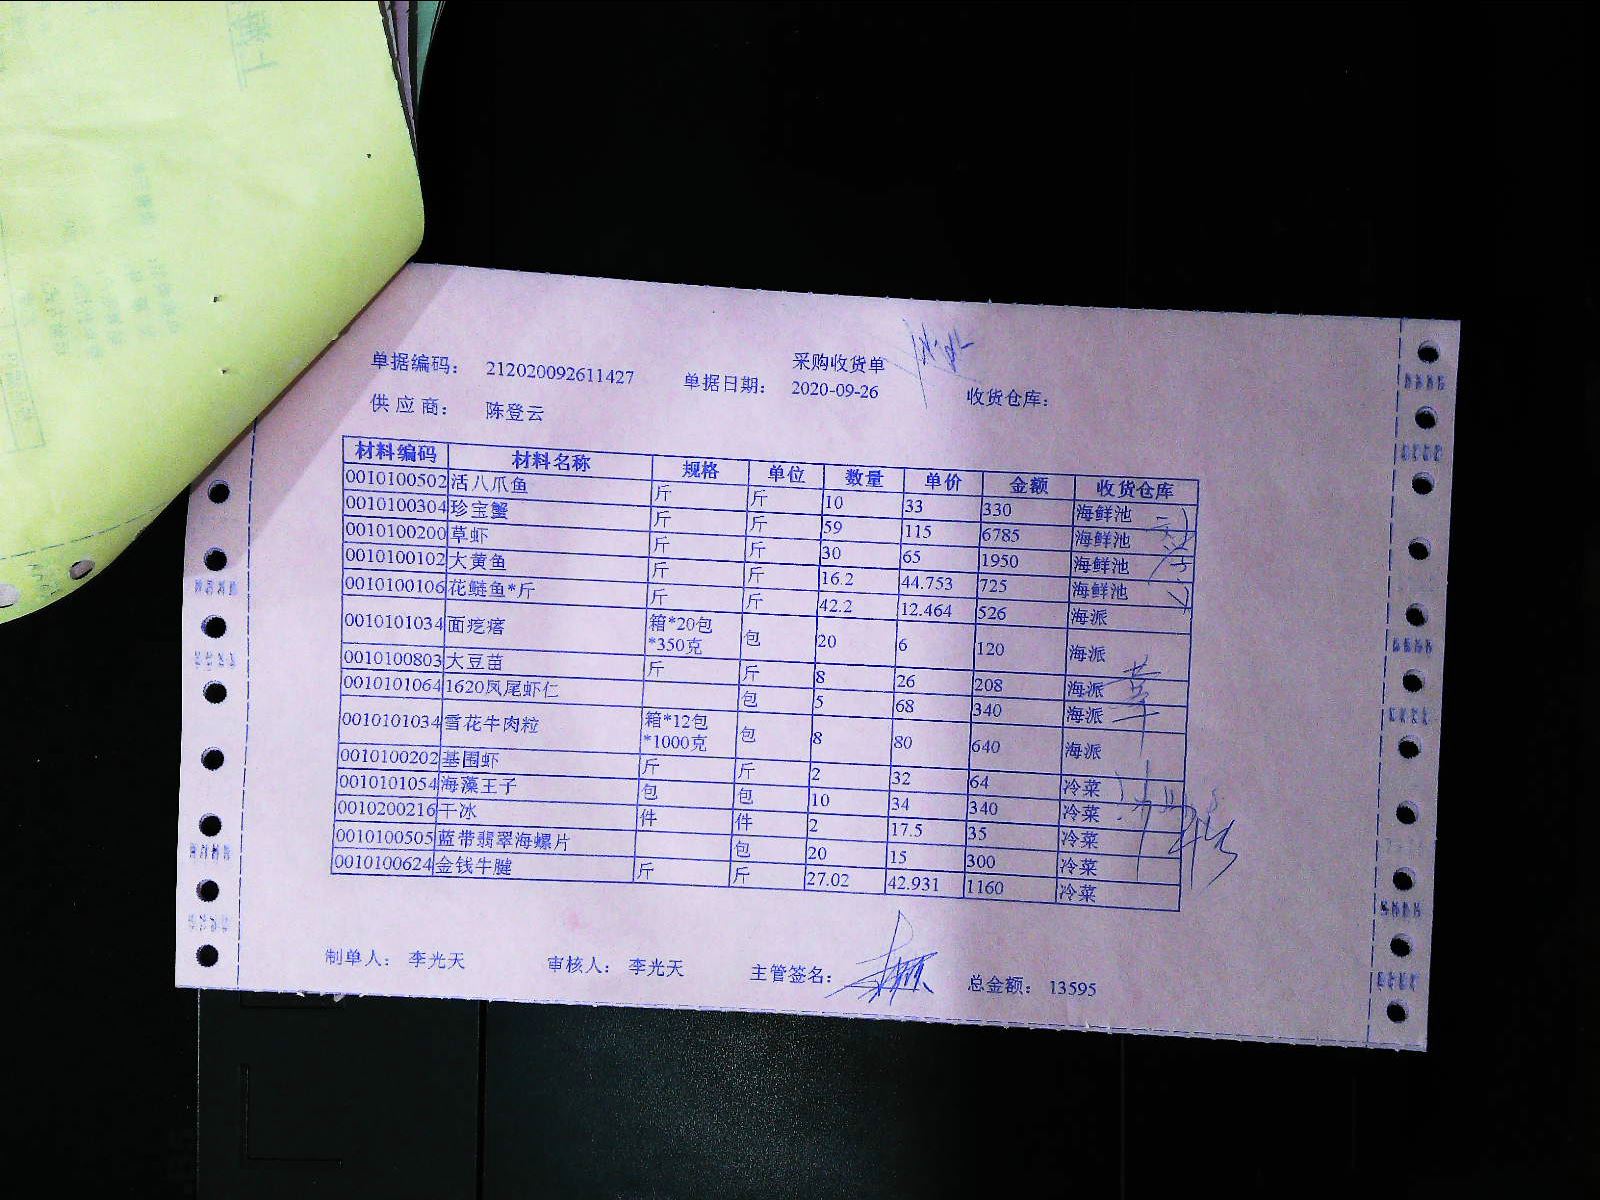 采购收货单
单据编码： 212020092611427 单据日期： 2020-09-26 收货仓库：
供 应 商： 陈登云
材料编码 材料名称 规格 单位 数量 单价 金额 收货仓库
0010100502 活八爪鱼 斤 斤 10 33 330 海鲜池
0010100304 珍宝蟹 斤 斤 59 115 6785 海鲜池
0010100200 草虾 斤 斤 30 65 1950 海鲜池
0010100102 大黄鱼 斤 斤 16.2 44.753 725 海鲜池
0010100106 花鲢鱼*斤 斤 斤 42.2 12.464 526 海派
0010101034 面疙瘩 箱*20包*350克 包 20 6 120 海派
0010100803 大豆苗 斤 斤 8 26 208 海派
0010101064 1620凤尾虾仁 包 5 68 340 海派
0010101034 雪花牛肉粒 箱*12包*1000克 包 8 80 640 海派
0010100202 基围虾 斤 斤 2 32 64 冷菜
0010101054 海藻王子 包 包 10 34 340 冷菜
0010200216 干冰 件 件 2 17.5 35 冷菜
0010100505 蓝带翡翠海螺片 包 20 15 300 冷菜
0010100624 金钱牛腱 斤 斤 27.02 42.931 1160 冷菜
制单人： 李光天 审核人： 李光天 主管签名： 总金额： 13595